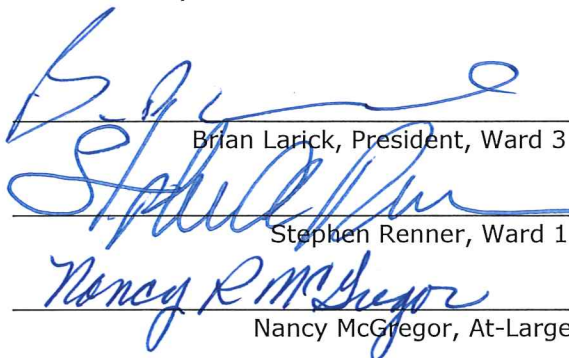 Brian Larick, President, Ward 3
Stephen Renner, Ward 1
Nancy R McGregor
Nancy McGregor, At-Large